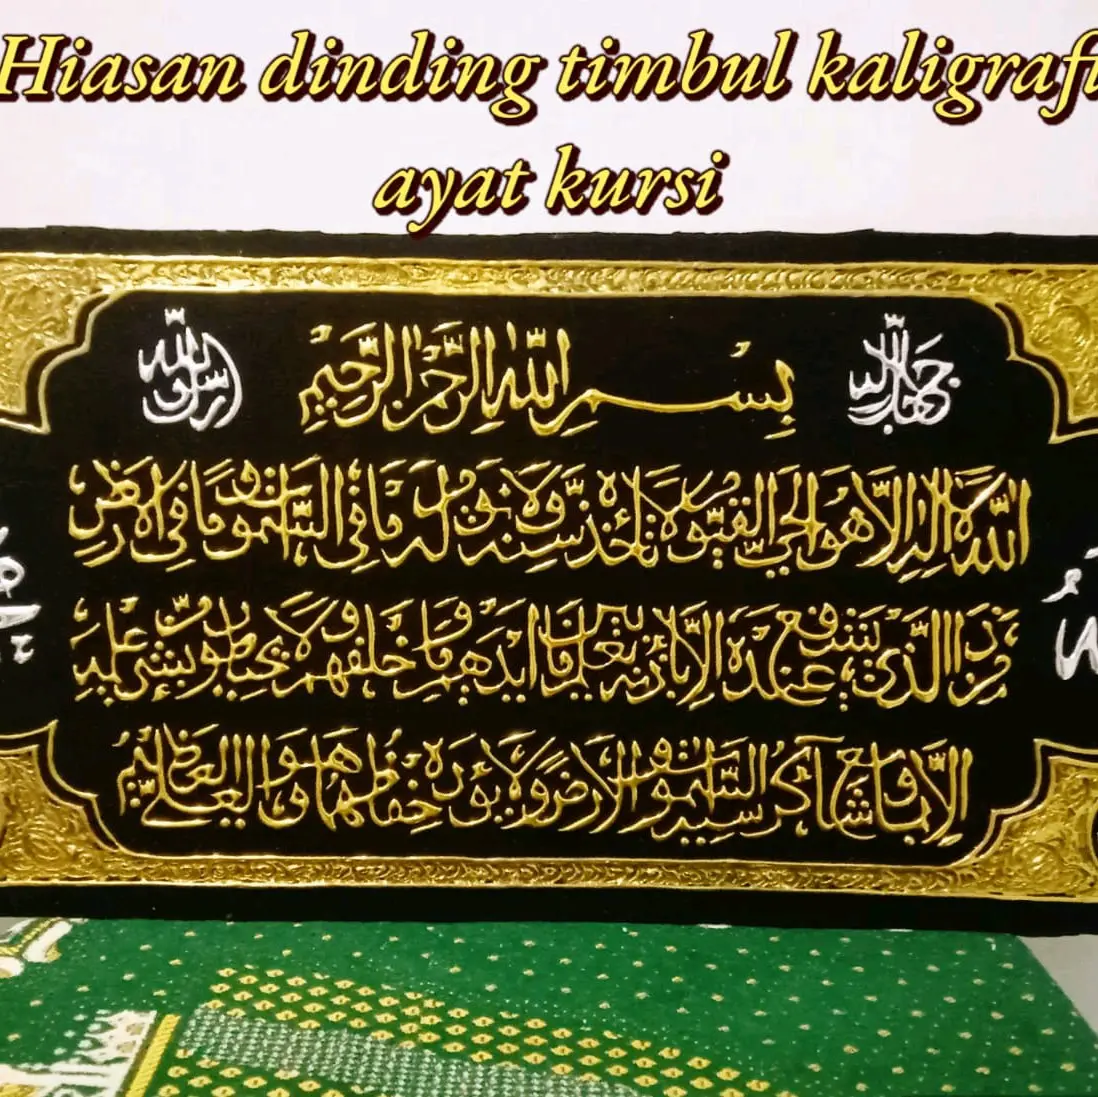 Hiasan dinding timbul kaligrafi
ayat kursi
بسم الله الرحمن الرحيم
الله لا إله إلا هو الحي القيوم لا تأخذه سنة ولا نوم له ما في السموات وما في الأرض
من ذا الذي يشفع عنده إلا بإذنه يعلم ما بين أيديهم وما خلفهم ولا يحيطون بشيء من علمه
إلا بما شاء وسع كرسيه السموات والأرض ولا يؤده حفظهما وهو العلي العظيم